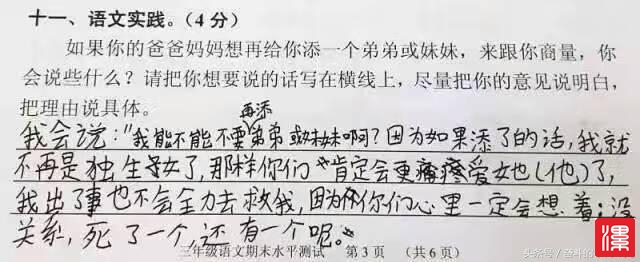 十一、语文实践。（4分）
如果你的爸爸妈妈想再给你添一个弟弟或妹妹，来跟你商量，你
会说些什么？请把你想要说的话写在横线上，尽量把你的意见说明白，
把理由说具体。
再添
我会说："我能不能不要弟弟或妹妹啊？因为如果添了的话，我就
不再是独生子女了，那样你们肯定会更疼爱她（他）了，
我出了事也不会全力去救我，因为你们心里一定会想着：没
关系，死了一个，还有一个呢。"
三年级语文期末水平测试 第3页 （共6页）
头条号
漯